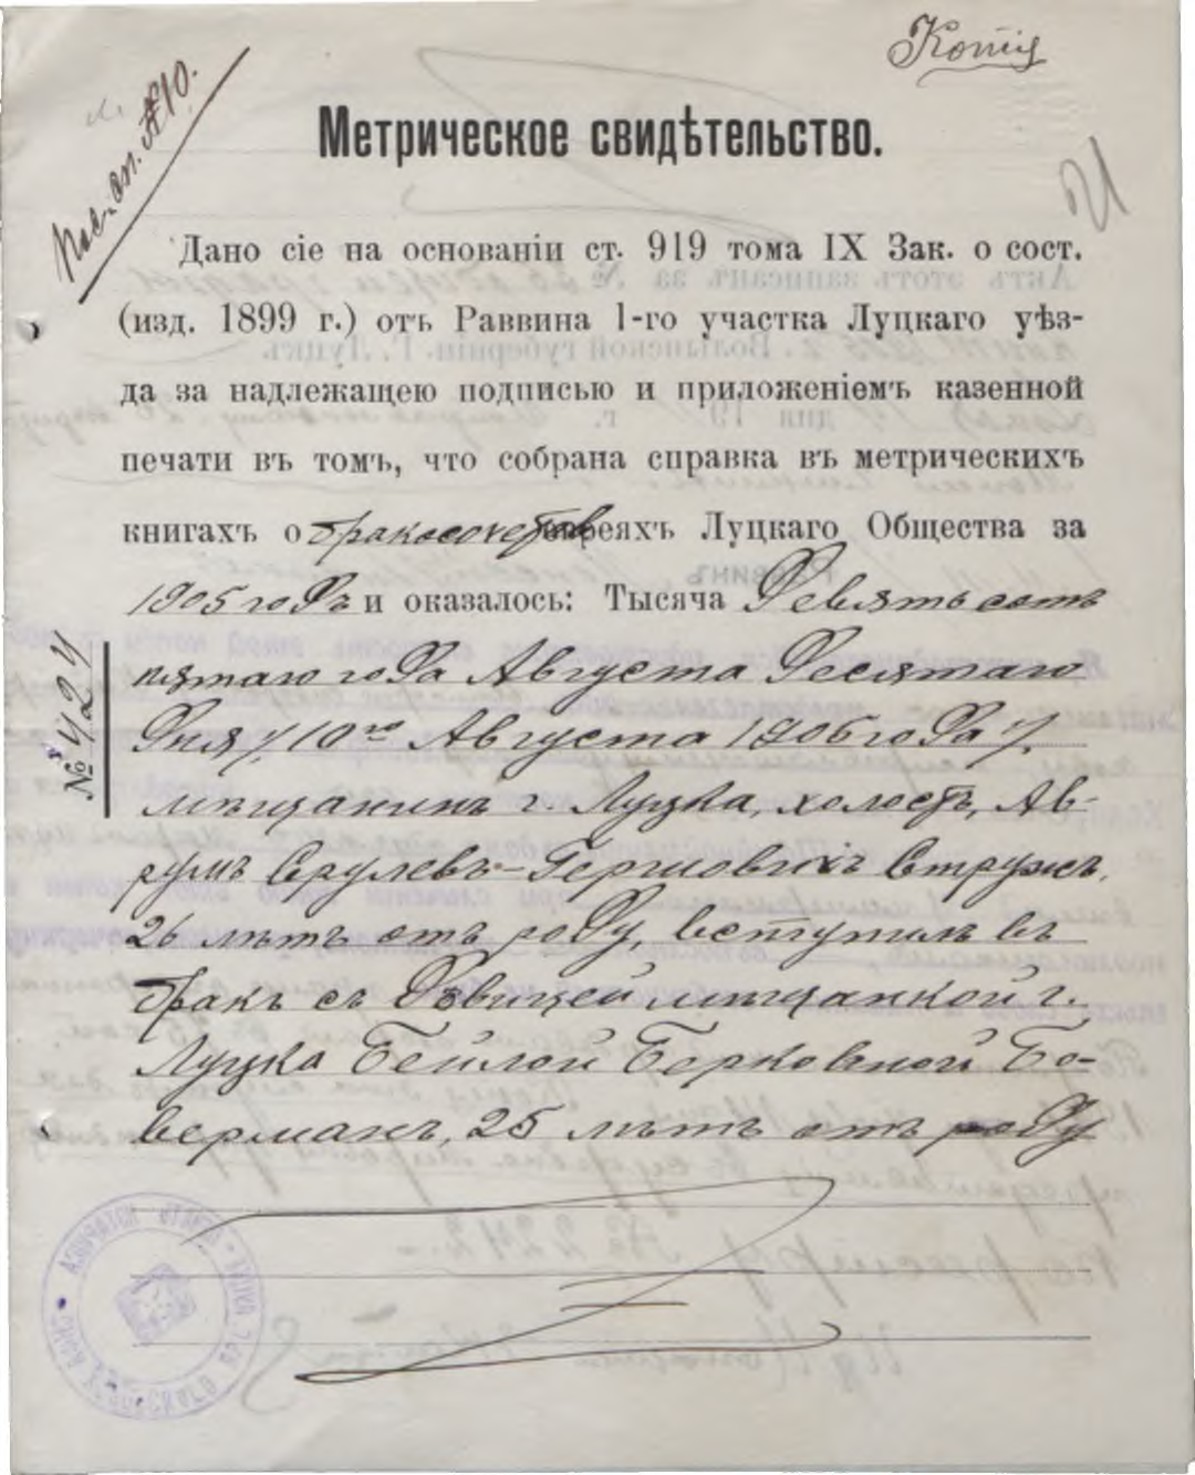 Копія
Пос. оп. №10.
21
Метрическое свидѣтельство.
Дано сіе на основаніи ст. 919 тома IX Зак. о сост.
(изд. 1899 г.) отъ Раввина 1-го участка Луцкаго уѣз-
да за надлежащею подписью и приложеніемъ казенной
печати въ томъ, что собрана справка въ метрическихъ
книгахъ о бракосочетав евреяхъ Луцкаго Общества за
1905 годъ и оказалось: Тысяча девятьсотъ
пятаго года Августа десятаго
дня /10го Августа 1905 года/.
№ 424
мѣщанинъ г. Луцка, холостъ, Ав-
румъ Срулевъ-Гершовичъ Стружъ,
26 лѣтъ отъ роду, вступилъ въ
бракъ съ дѣвицей мѣщанкой г.
Луцка Бейлой Берковной Бо-
верманъ, 25 лѣтъ отъ роду